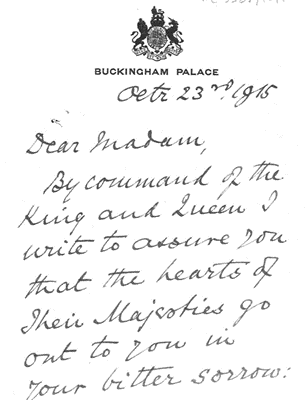 BUCKINGHAM PALACE
Octr 23rd 1915
Dear Madam,
By command of the
King and Queen I
write to assure you
that the hearts of
Their Majesties go
out to you in
your bitter sorrow: